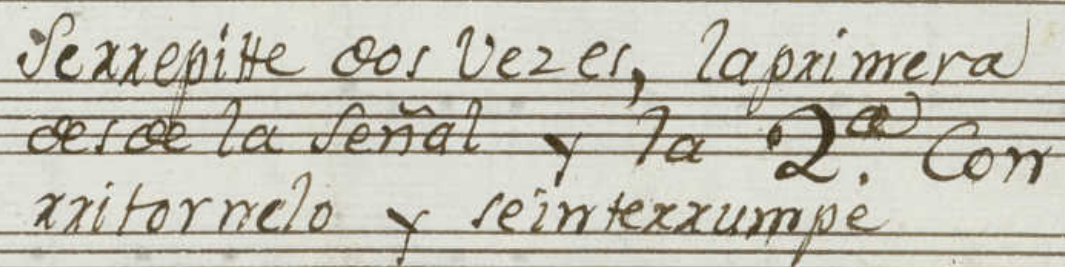 Serrepitte dos Vezes, laprimera
desde la señal y la 2.ª Con
rritornelo y seinterrumpe